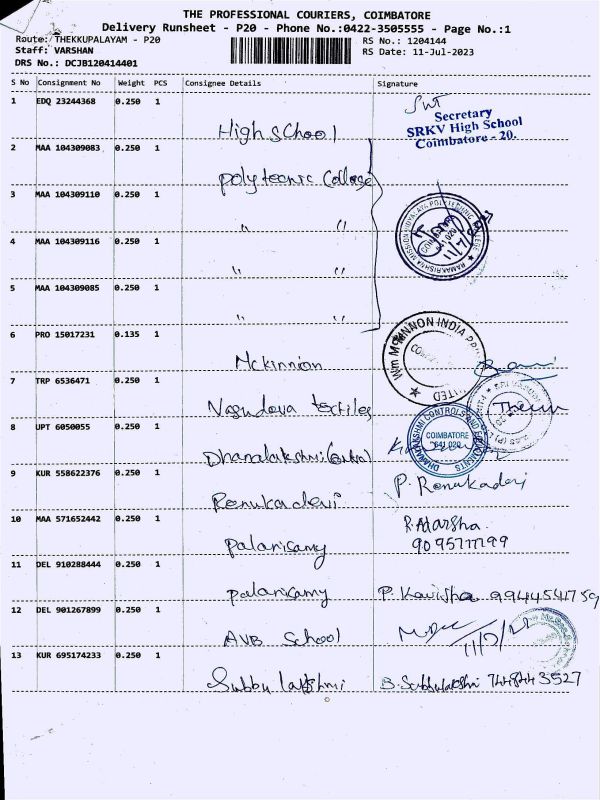 THE PROFESSIONAL COURIERS, COIMBATORE
Delivery Runsheet - P20 - Phone No.:0422-3505555 - Page No.:1
Route: THEKKUPALAYAM - P20
RS No.: 1204144
Staff: VARSHAN
RS Date: 11-Jul-2023
DRS No.: DCJB120414401
S No Consignment No Weight PCS Consignee Details Signature
1 EDQ 23244368 0.250 1 High school
Secretary
SRKV High School
Coimbatore - 20.
2 MAA 104309083 0.250 1 polytecnic College
3 MAA 104309110 0.250 1 " "
4 MAA 104309116 0.250 1 " "
5 MAA 104309085 0.250 1 " "
6 PRO 15017231 0.135 1 Mckinnion
7 TRP 6536471 0.250 1 Vasudeva textiles
8 UPT 6050055 0.250 1 Dhanalakshmi
COIMBATORE
641 020
9 KUR 558622376 0.250 1 Renukadevi P. Renukadevi
10 MAA 571652442 0.250 1 palanisamy
11 DEL 910288444 0.250 1 palanisamy P. Kavisha
12 DEL 901267899 0.250 1 AVB School
13 KUR 695174233 0.250 1 Subbu lakshmi